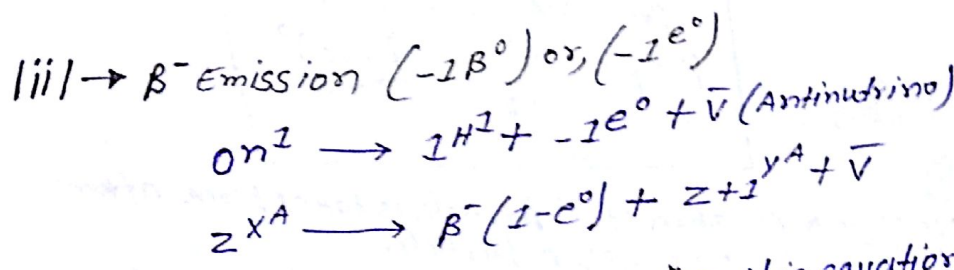 |ii| → β⁻ Emission (-1β⁰) or, (-1e⁰)
0n¹ → 1H¹ + -1e⁰ + ν̅ (Antinutrino)
zXᴬ → β⁻(1-e⁰) + z+1Yᴬ + ν̅
equation